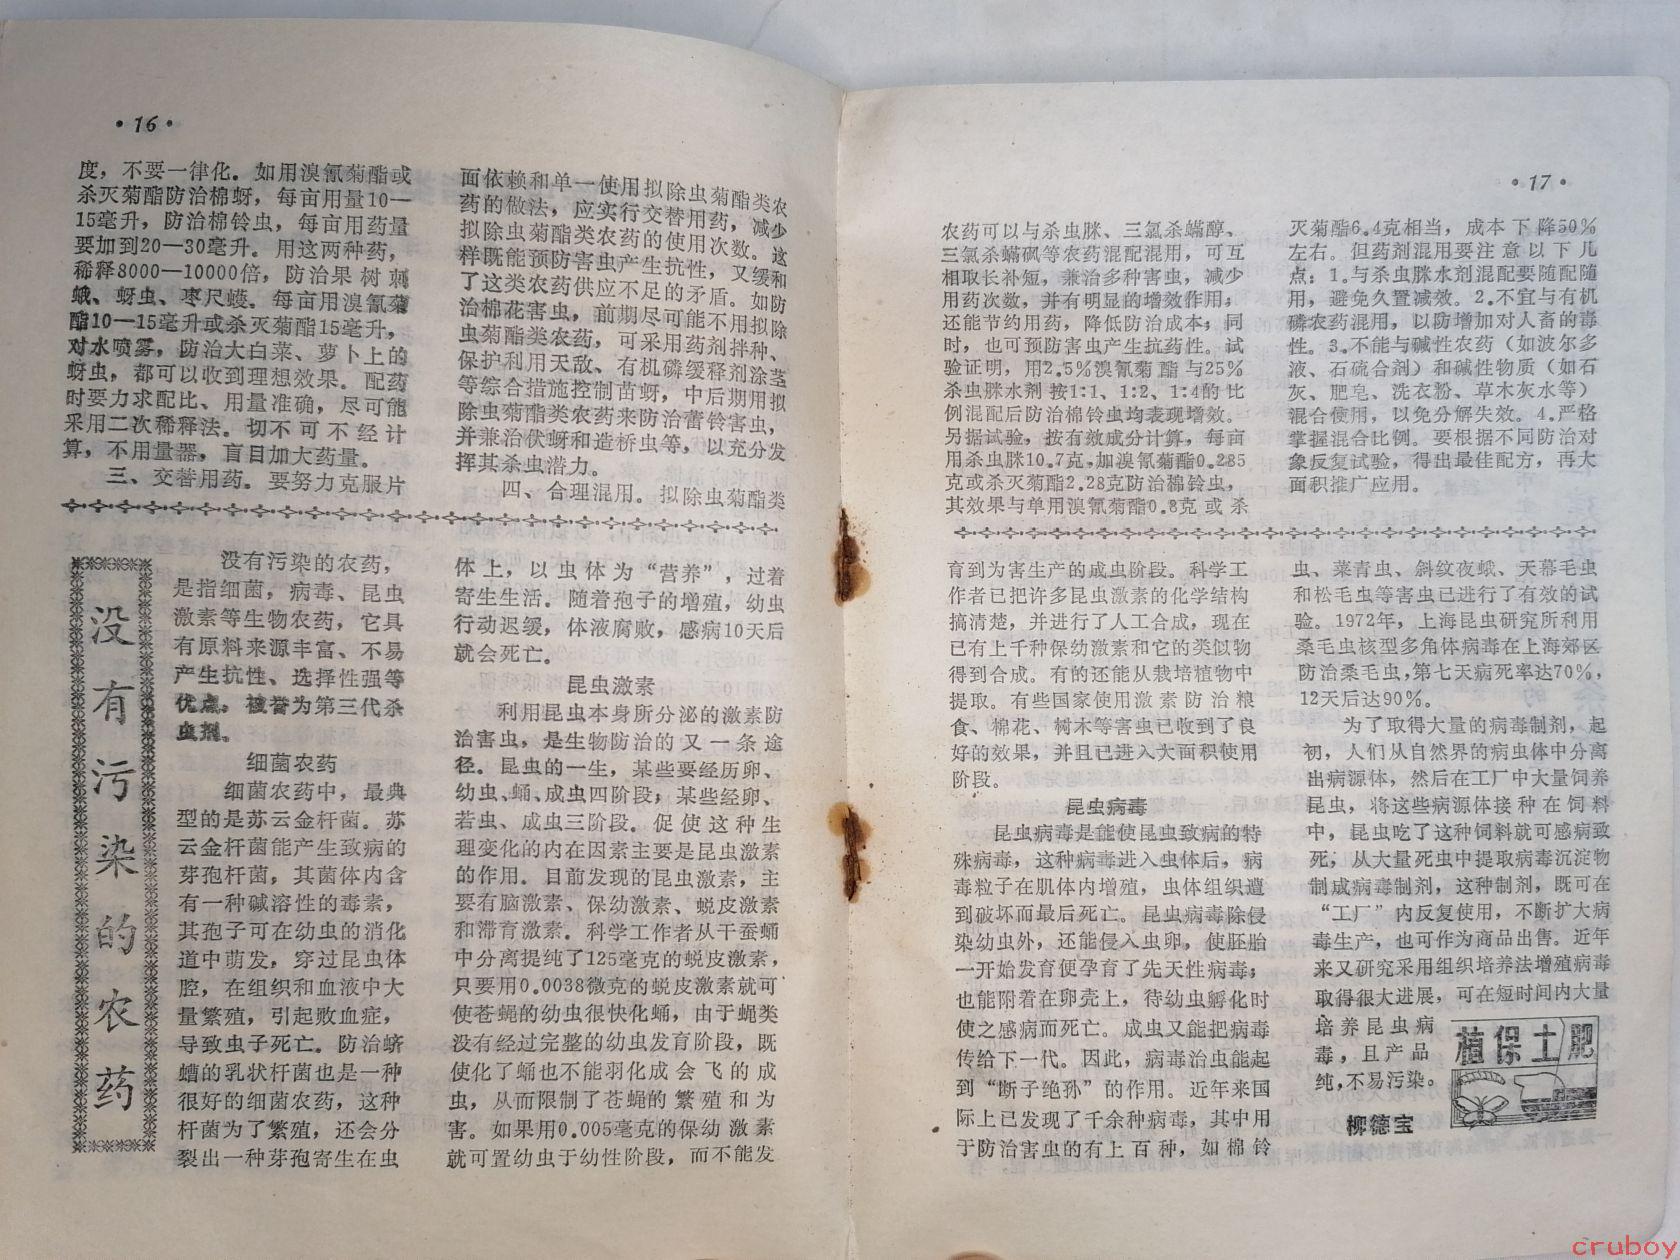 ·16·
度，不要一律化。如用溴氰菊酯或
杀灭菊酯防治棉蚜，每亩用量10—
15毫升，防治棉铃虫，每亩用药量
要加到20—30毫升。用这两种药，
稀释8000—10000倍，防治果树刺
蛾、蚜虫、枣尺蠖。每亩用溴氰菊
酯10—15毫升或杀灭菊酯15毫升，
对水喷雾，防治大白菜、萝卜上的
蚜虫，都可以收到理想效果。配药
时要力求配比、用量准确，尽可能
采用二次稀释法。切不可不经计
算，不用量器，盲目加大药量。
三、交替用药。要努力克服片
面依赖和单一使用拟除虫菊酯类农
药的做法，应实行交替用药，减少
拟除虫菊酯类农药的使用次数。这
样既能预防害虫产生抗性，又缓和
了这类农药供应不足的矛盾。如防
治棉花害虫，前期尽可能不用拟除
虫菊酯类农药，可采用药剂拌种、
保护利用天敌、有机磷缓释剂涂茎
等综合措施控制苗蚜，中后期用拟
除虫菊酯类农药来防治蕾铃害虫，
并兼治伏蚜和造桥虫等，以充分发
挥其杀虫潜力。
四、合理混用。拟除虫菊酯类
·17·
农药可以与杀虫脒、三氯杀螨醇、
三氯杀螨砜等农药混配混用，可互
相取长补短，兼治多种害虫，减少
用药次数，并有明显的增效作用；
还能节约用药，降低防治成本；同
时，也可预防害虫产生抗药性。试
验证明，用2.5%溴氰菊酯与25%
杀虫脒水剂按1:1、1:2、1:4的比
例混配后防治棉铃虫均表现增效。
另据试验，按有效成分计算，每亩
用杀虫脒10.7克，加溴氰菊酯0.285
克或杀灭菊酯2.28克防治棉铃虫，
其效果与单用溴氰菊酯0.8克或杀
灭菊酯6.4克相当，成本下降50%
左右。但药剂混用要注意以下几
点：1.与杀虫脒水剂混配要随配随
用，避免久置减效。2.不宜与有机
磷农药混用，以防增加对人畜的毒
性。3.不能与碱性农药（如波尔多
液、石硫合剂）和碱性物质（如石
灰、肥皂、洗衣粉、草木灰水等）
混合使用，以免分解失效。4.严格
掌握混合比例。要根据不同防治对
象反复试验，得出最佳配方，再大
面积推广应用。
没有污染的农药
没有污染的农药，
是指细菌，病毒、昆虫
激素等生物农药，它具
有原料来源丰富、不易
产生抗性、选择性强等
优点。被誉为第三代杀
虫剂。
细菌农药
细菌农药中，最典
型的是苏云金杆菌。苏
云金杆菌能产生致病的
芽孢杆菌，其菌体内含
有一种碱溶性的毒素，
其孢子可在幼虫的消化
道中萌发，穿过昆虫体
腔，在组织和血液中大
量繁殖，引起败血症，
导致虫子死亡。防治蛴
螬的乳状杆菌也是一种
很好的细菌农药，这种
杆菌为了繁殖，还会分
裂出一种芽孢寄生在虫
体上，以虫体为“营养”，过着
寄生生活。随着孢子的增殖，幼虫
行动迟缓，体液腐败，感病10天后
就会死亡。
昆虫激素
利用昆虫本身所分泌的激素防
治害虫，是生物防治的又一条途
径。昆虫的一生，某些要经历卵、
幼虫、蛹、成虫四阶段；某些经卵、
若虫、成虫三阶段。促使这种生
理变化的内在因素主要是昆虫激素
的作用。目前发现的昆虫激素，主
要有脑激素、保幼激素、蜕皮激素
和滞育激素。科学工作者从干蚕蛹
中分离提纯了125毫克的蜕皮激素，
只要用0.0038微克的蜕皮激素就可
使苍蝇的幼虫很快化蛹，由于蝇类
没有经过完整的幼虫发育阶段，既
使化了蛹也不能羽化成会飞的成
虫，从而限制了苍蝇的繁殖和为
害。如果用0.005毫克的保幼激素
就可置幼虫于幼性阶段，而不能发
育到为害生产的成虫阶段。科学工
作者已把许多昆虫激素的化学结构
搞清楚，并进行了人工合成，现在
已有上千种保幼激素和它的类似物
得到合成。有的还能从栽培植物中
提取。有些国家使用激素防治粮
食、棉花、树木等害虫已收到了良
好的效果，并且已进入大面积使用
阶段。
昆虫病毒
昆虫病毒是能使昆虫致病的特
殊病毒，这种病毒进入虫体后，病
毒粒子在肌体内增殖，虫体组织遭
到破坏而最后死亡。昆虫病毒除侵
染幼虫外，还能侵入虫卵，使胚胎
一开始发育便孕育了先天性病毒；
也能附着在卵壳上，待幼虫孵化时
使之感病而死亡。成虫又能把病毒
传给下一代。因此，病毒治虫能起
到“断子绝孙”的作用。近年来国
际上已发现了千余种病毒，其中用
于防治害虫的有上百种，如棉铃
虫、菜青虫、斜纹夜蛾、天幕毛虫
和松毛虫等害虫已进行了有效的试
验。1972年，上海昆虫研究所利用
桑毛虫核型多角体病毒在上海郊区
防治桑毛虫，第七天病死率达70%，
12天后达90%。
为了取得大量的病毒制剂，起
初，人们从自然界的病虫体中分离
出病源体，然后在工厂中大量饲养
昆虫，将这些病源体接种在饲料
中，昆虫吃了这种饲料就可感病致
死，从大量死虫中提取病毒沉淀物
制成病毒制剂，这种制剂，既可在
“工厂”内反复使用，不断扩大病
毒生产，也可作为商品出售。近年
来又研究采用组织培养法增殖病毒
取得很大进展，可在短时间内大量
培养昆虫病
毒，且产品
纯，不易污染。
柳德宝
植保土肥
cruboy